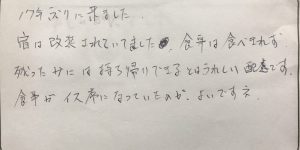 17年ぶりに来ました。
宿は改装されていてました。食事は食べきれず
残ったサには持ち帰りできるとはうれしい配慮です。
食事がイス席になっていたのが、よいですネ